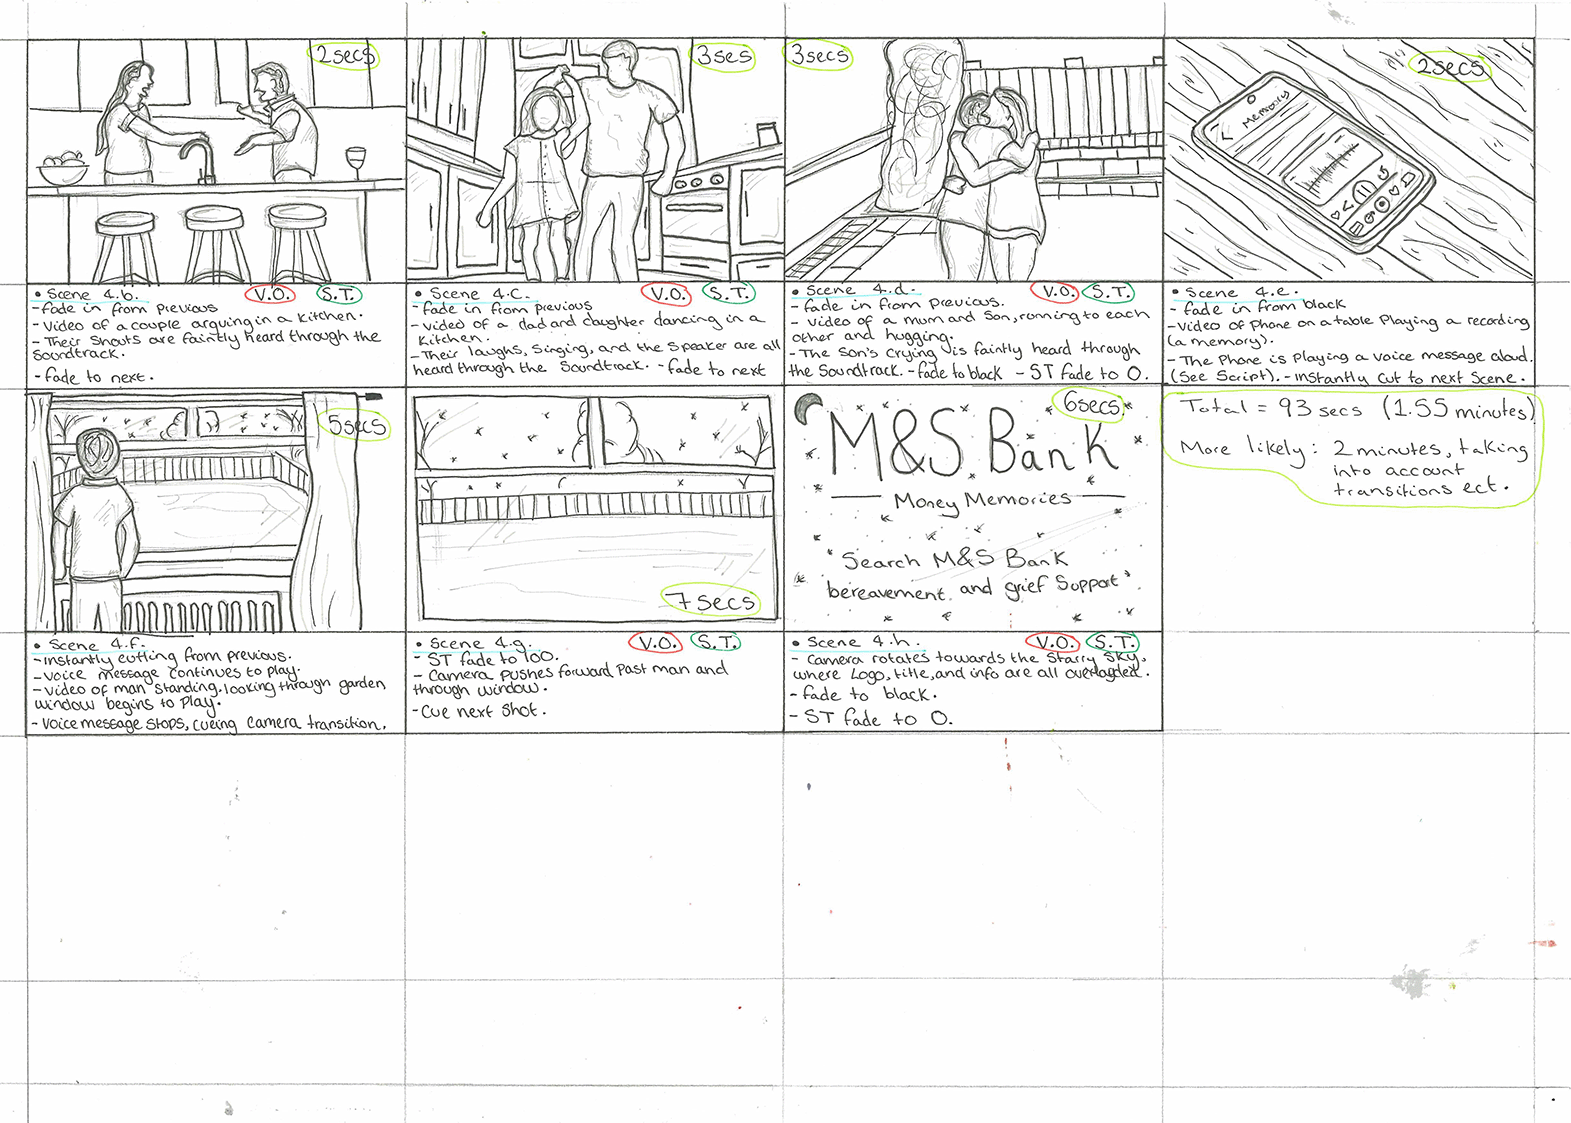 2secs
• Scene 4.b. V.O. S.T.
- fade in from previous
- Video of a couple arguing in a kitchen.
- Their shouts are faintly heard through the
soundtrack.
- fade to next.
3ses
• Scene 4.c. V.O. S.T.
- fade in from previous
- Video of a dad and daughter dancing in a
kitchen.
- Their laughs, singing, and the speaker are all
heard through the soundtrack. - fade to next
3secs
• Scene 4.d. V.O. S.T.
- fade in from previous.
- Video of a mum and son, running to each
other and hugging.
- The son's crying is faintly heard through
the soundtrack. - fade to black - ST fade to 0.
2secs
Memory
• Scene 4.e.
- fade in from black
- Video of phone on a table playing a recording
(a memory).
- The phone is playing a voice message aloud.
(See Script). - instantly cut to next scene.
5secs
• Scene 4.f.
- instantly cutting from previous.
- voice message continues to play.
- Video of man standing, looking through garden
window begins to play.
- voice message stops, cueing camera transition.
7secs
• Scene 4.g. V.O. S.T.
- ST fade to 100.
- Camera pushes forward past man and
through window.
- Cue next shot.
6secs
M&S Bank
Money Memories
'Search M&S Bank
bereavement and grief support'
• Scene 4.h. V.O. S.T.
- Camera rotates towards the starry sky,
where logo, title, and info are all overlayed.
- fade to black.
- ST fade to 0.
Total = 93 secs (1.55 minutes)
More likely: 2 minutes, taking
into account
transitions ect.